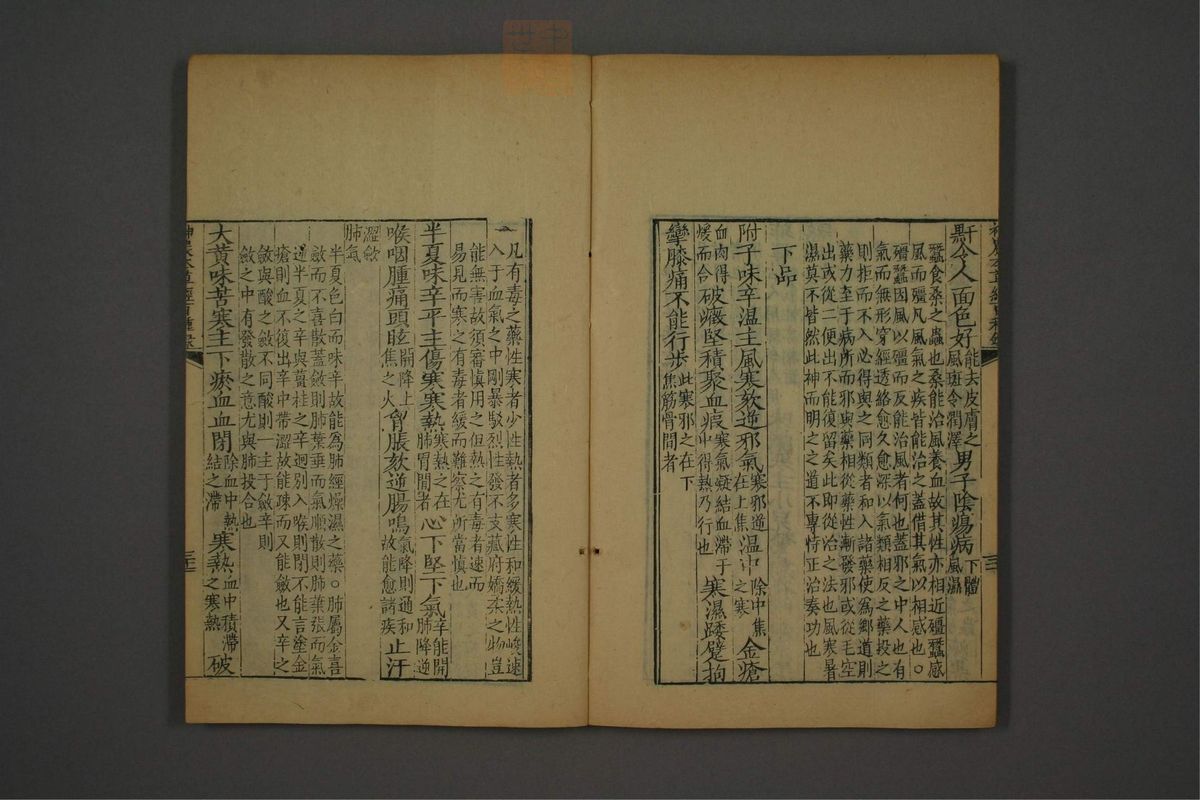 䵟令人面色好能去皮膚之風斑令潤澤男子陰瘍病下體風濕
蠶食桑之蟲也桑能治風養血故其性亦相近殭蠶感
風而殭凡風氣之疾皆能治之蓋借其氣以相感也○
殭蠶因風以殭而反能治風者何也蓋邪之中人也有
氣而無形穿經透絡愈久愈深以氣類相反之藥投之
則拒而不入必得與之同類者和入諸藥使爲鄉道則
藥力至于病所而邪與藥相從藥性漸發邪或從毛空
出或從二便出不能復留矣此即從治之法也風寒暑
濕莫不皆然此神而明之之道不專恃正治奏功也
下品
附子味辛温主風寒欬逆邪氣寒邪逆在上焦温中除中焦之寒金瘡
血肉得煖而合破癥堅積聚血瘕寒氣凝結血滯于中得熱乃行也寒濕踒躄拘
攣膝痛不能行步此寒邪之在下焦筋骨間者
凡有毒之藥性寒者少性熱者多寒性和緩熱性峻速
入于血氣之中剛暴駁烈性發不支藏府嬌柔之物豈
能無害故須審慎用之但熱之有毒者速而
易見而寒之有毒者緩而難察尤所當慎也
半夏味辛平主傷寒寒熱寒熱之在肺胃間者心下堅下氣辛能開肺降逆
喉咽腫痛頭眩開降上焦之火胷脹欬逆腸鳴氣降則通和故能愈諸疾止汗
澀斂肺氣
半夏色白而味辛故能為肺經燥濕之藥○肺屬金喜
斂而不喜散蓋斂則肺葉垂而氣順散則肺葉張而氣
逆半夏之辛與薑桂之辛迥別入喉則閉不能言塗金
瘡則血不復出辛中帶澀故能疎而又能斂也又辛之
斂與酸之斂不同酸則一主于斂辛則
斂之中有發散之意尤與肺投合也
大黄味苦寒主下瘀血血閉除血中熱結之滯寒熱血中積滯之寒熱破